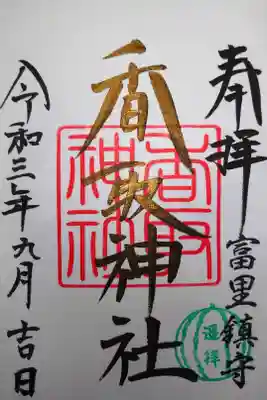 奉拝 富里鎮守
香取神社
令和三年九月吉日
香取神社
遥拝